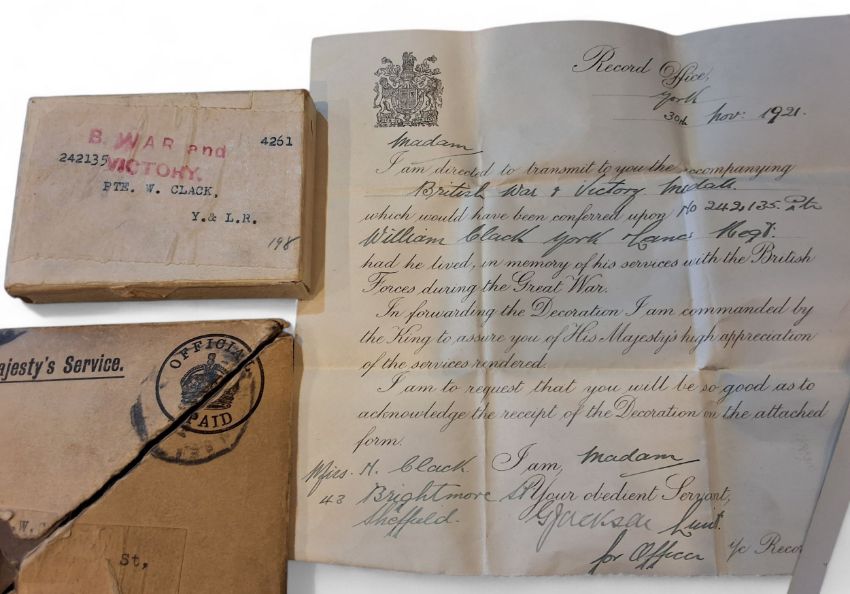 B. WAR and
VICTORY.
4261
242135
PTE. W. CLACK,
Y.& L.R.
198
ajesty's Service.
OFFICIAL
PAID
St,
Record Office,
York
30th Nov: 1921.
Madam
I am directed to transmit to you the accompanying
British War & Victory Medals
which would have been conferred upon No 242135. Pte
William Clack York & Lancs Regt.
had he lived, in memory of his services with the British
Forces during the Great War.
In forwarding the Decoration I am commanded by
the King to assure you of His Majesty's high appreciation
of the services rendered.
I am to request that you will be so good as to
acknowledge the receipt of the Decoration on the attached
form.
I am, Madam
Your obedient Servant,
GJackson Lieut.
for Officer i/c Recor
H. Clack
43 Brightmore St
Sheffield.